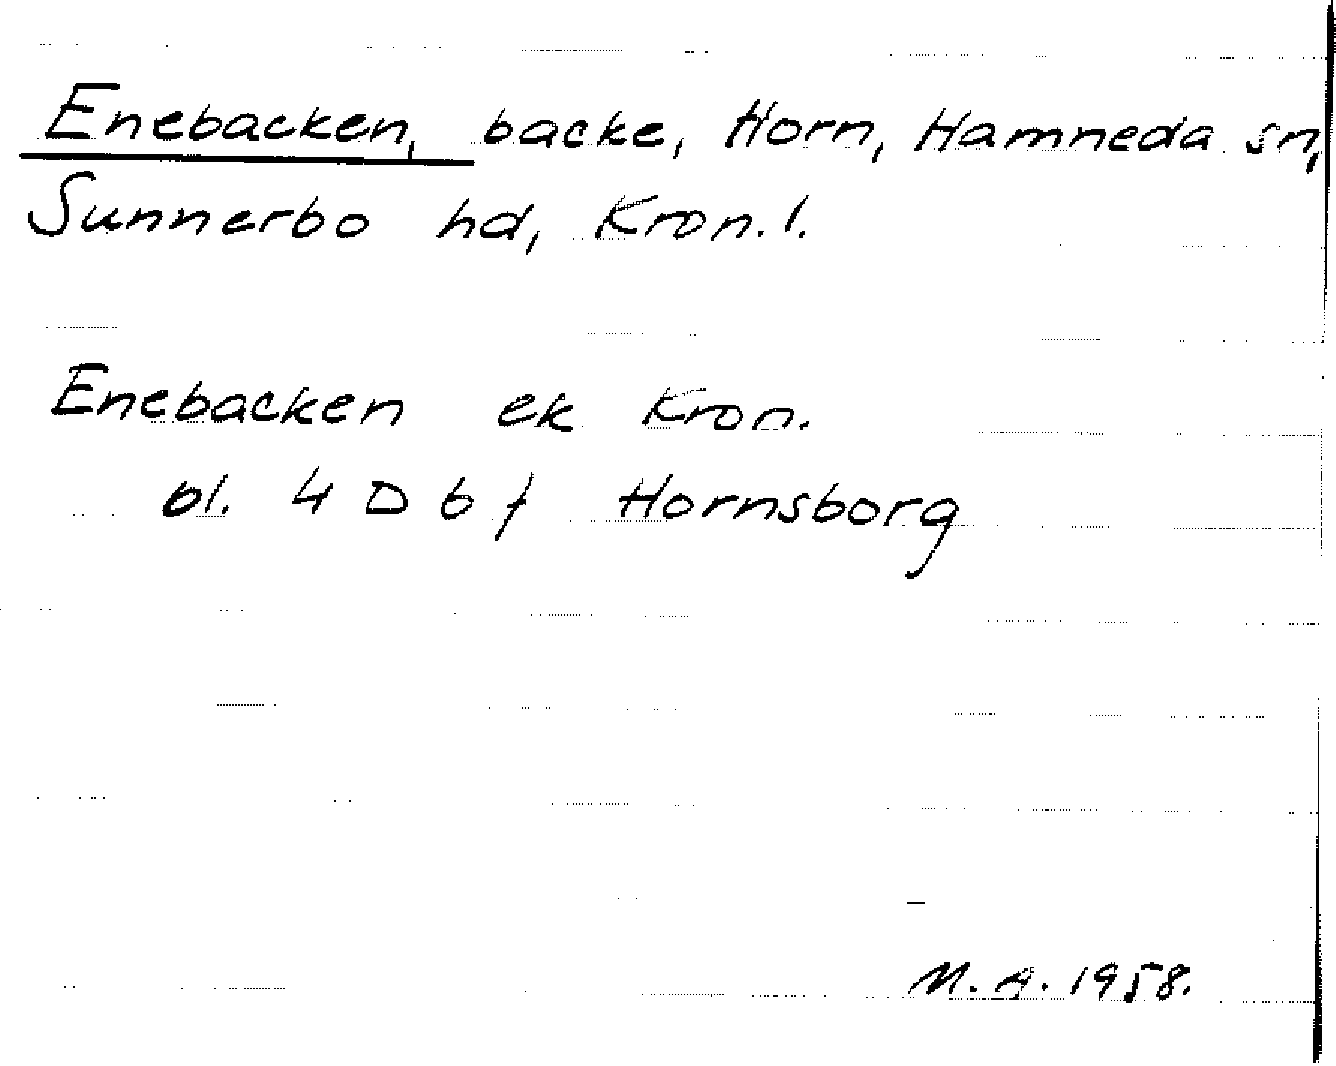 Enebacken, backe, Horn, Hamneda sn,
Sunnerbo hd, Kron. l.
Enebacken ek Kron.
bl. 4 D 6 f Hornsborg
M. A. 1958.